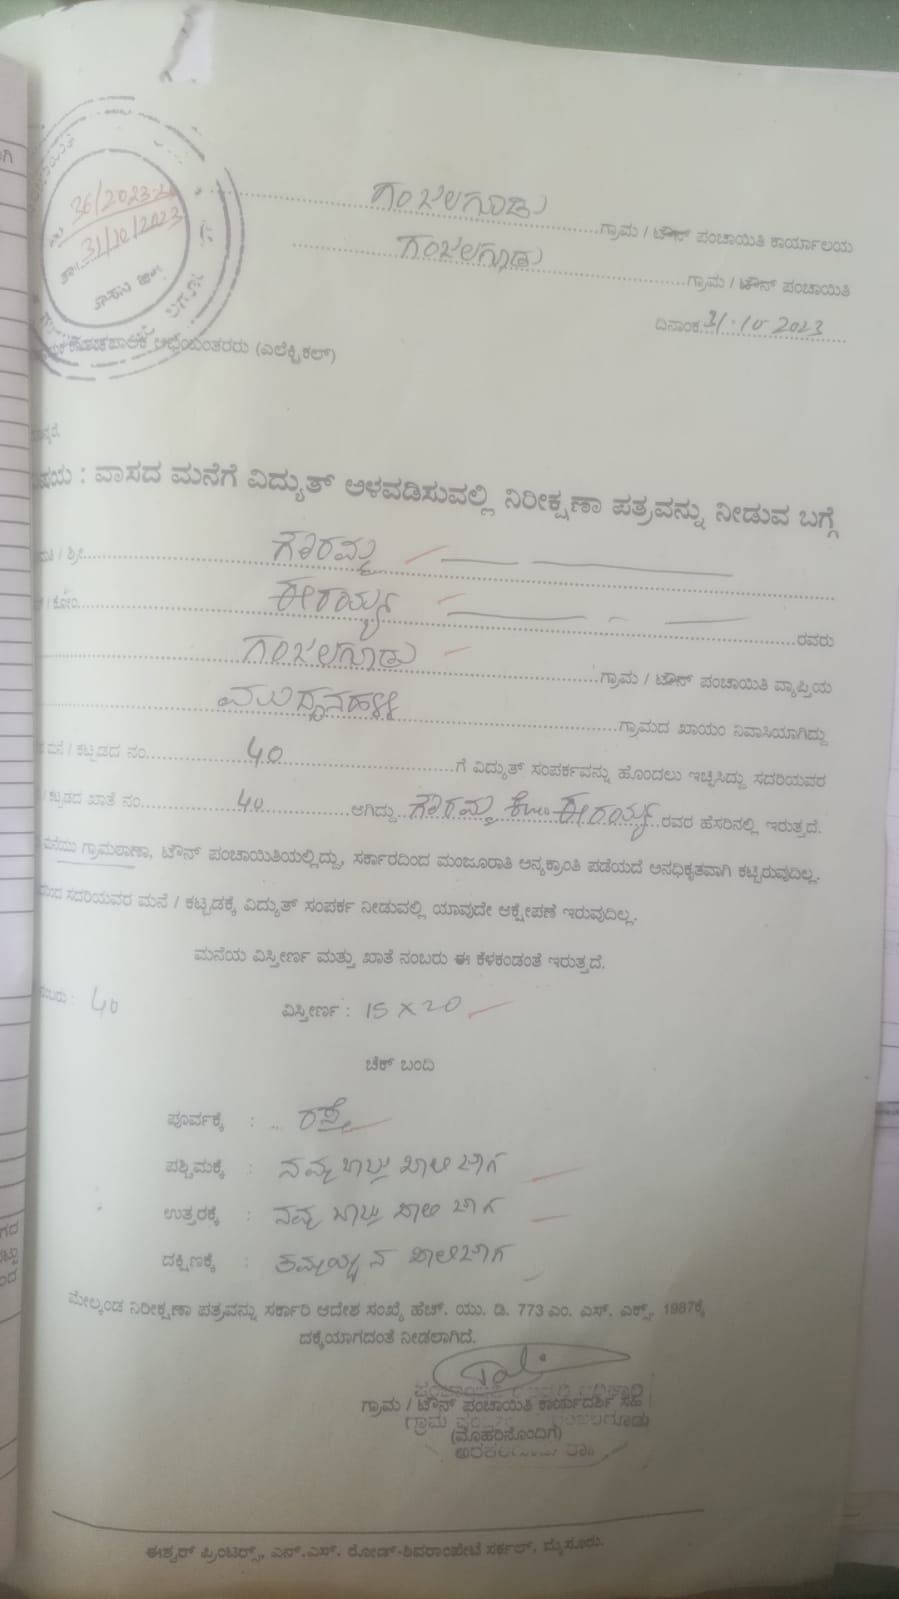 36/2023-24
31/10/2023
ಗಂಜಲಗೂಡು ಗ್ರಾಮ / ಟೌನ್ ಪಂಚಾಯಿತಿ ಕಾರ್ಯಾಲಯ
ಗಂಜಲಗೂಡು ಗ್ರಾಮ / ಟೌನ್ ಪಂಚಾಯಿತಿ
ದಿನಾಂಕ 31-10-2023
ಅಭಿಯಂತರರು (ಎಲೆಕ್ಟ್ರಿಕಲ್)
: ವಾಸದ ಮನೆಗೆ ವಿದ್ಯುತ್ ಅಳವಡಿಸುವಲ್ಲಿ ನಿರೀಕ್ಷಣಾ ಪತ್ರವನ್ನು ನೀಡುವ ಬಗ್ಗೆ
/ ಶ್ರೀ ಗೌರಮ್ಮ
/ ಕೋಂ ಈರಯ್ಯ ರವರು
ಗಂಜಲಗೂಡು ಗ್ರಾಮ / ಟೌನ್ ಪಂಚಾಯಿತಿ ವ್ಯಾಪ್ತಿಯ
ಗ್ರಾಮದ ಖಾಯಂ ನಿವಾಸಿಯಾಗಿದ್ದು
ಮನೆ / ಕಟ್ಟಡದ ನಂ. 40 ಗೆ ವಿದ್ಯುತ್ ಸಂಪರ್ಕವನ್ನು ಹೊಂದಲು ಇಚ್ಛಿಸಿದ್ದು ಸದರಿಯವರ
/ ಕಟ್ಟಡದ ಖಾತೆ ನಂ. 40 ಆಗಿದ್ದು ಗೌರಮ್ಮ ಕೋಂ ಈರಯ್ಯ ರವರ ಹೆಸರಿನಲ್ಲಿ ಇರುತ್ತದೆ.
ಮನೆಯು ಗ್ರಾಮಠಾಣಾ, ಟೌನ್ ಪಂಚಾಯಿತಿಯಲ್ಲಿದ್ದು, ಸರ್ಕಾರದಿಂದ ಮಂಜೂರಾತಿ ಅನ್ಯಕ್ರಾಂತಿ ಪಡೆಯದೆ ಅನಧಿಕೃತವಾಗಿ ಕಟ್ಟಿರುವುದಿಲ್ಲ.
ಸದರಿಯವರ ಮನೆ / ಕಟ್ಟಡಕ್ಕೆ ವಿದ್ಯುತ್ ಸಂಪರ್ಕ ನೀಡುವಲ್ಲಿ ಯಾವುದೇ ಆಕ್ಷೇಪಣೆ ಇರುವುದಿಲ್ಲ.
ಮನೆಯ ವಿಸ್ತೀರ್ಣ ಮತ್ತು ಖಾತೆ ನಂಬರು ಈ ಕೆಳಕಂಡಂತೆ ಇರುತ್ತದೆ.
40 ವಿಸ್ತೀರ್ಣ : 15 X 20
ಚೆಕ್ ಬಂದಿ
ಪೂರ್ವಕ್ಕೆ : ರಸ್ತೆ
ಪಶ್ಚಿಮಕ್ಕೆ : ನಮ್ಮ ಬಾಬ್ತು ಖಾಲಿ ಜಾಗ
ಉತ್ತರಕ್ಕೆ : ನಮ್ಮ ಬಾಬ್ತು ಖಾಲಿ ಜಾಗ
ದಕ್ಷಿಣಕ್ಕೆ : ತಮ್ಮಯ್ಯನ ಖಾಲಿಜಾಗ
ಮೇಲ್ಕಂಡ ನಿರೀಕ್ಷಣಾ ಪತ್ರವನ್ನು ಸರ್ಕಾರಿ ಆದೇಶ ಸಂಖ್ಯೆ ಹೆಚ್. ಯು. ಡಿ. 773 ಎಂ. ಎಸ್. ಎಕ್ಸ್. 1987ಕ್ಕೆ
ದಕ್ಕೆಯಾಗದಂತೆ ನೀಡಲಾಗಿದೆ.
ಗ್ರಾಮ / ಟೌನ್ ಪಂಚಾಯಿತಿ ಕಾರ್ಯದರ್ಶಿ ಸಹಿ
(ಮೊಹರಿನೊಂದಿಗೆ)
ಈಶ್ವರ್ ಪ್ರಿಂಟರ್ಸ್, ಎನ್.ಎಸ್. ರೋಡ್-ಶಿವರಾಂಪೇಟೆ ಸರ್ಕಲ್, ಮೈಸೂರು.